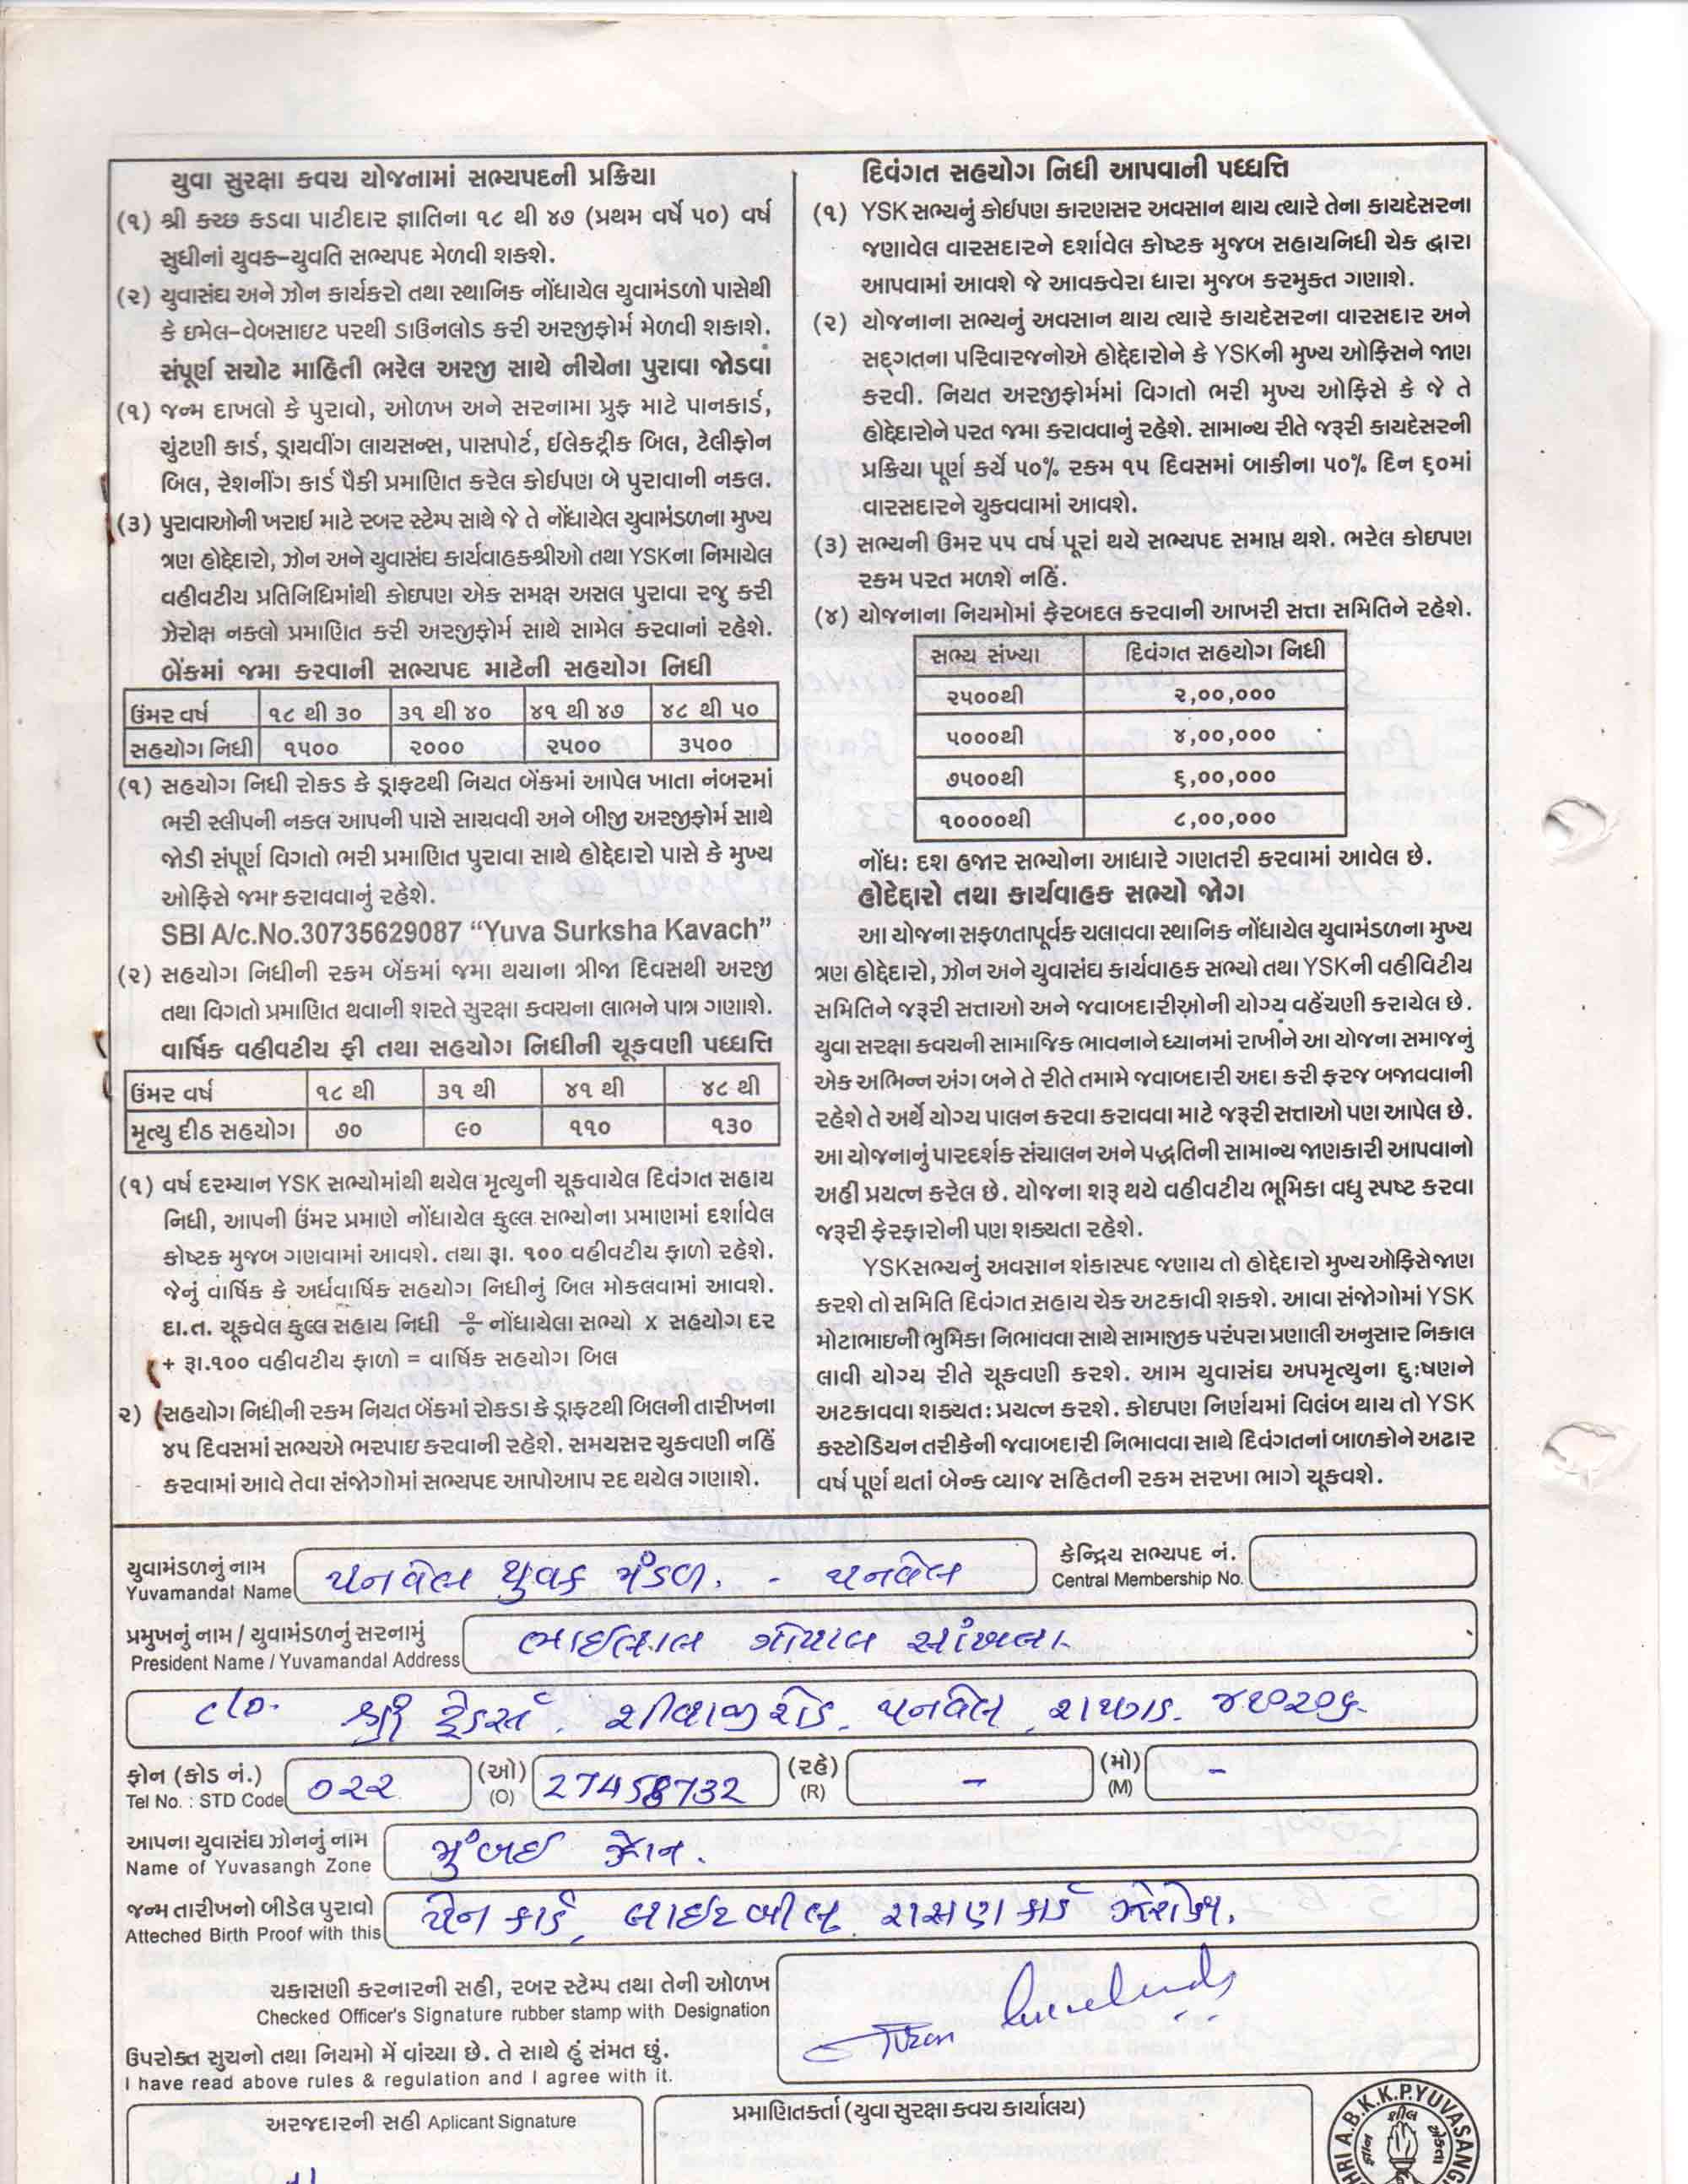 યુવા સુરક્ષા કવચ યોજનામાં સભ્યપદની પ્રક્રિયા
(૧) શ્રી કચ્છ કડવા પાટીદાર જ્ઞાતિના ૧૮ થી ૪૭ (પ્રથમ વર્ષે ૫૦) વર્ષ
સુધીનાં યુવક-યુવતિ સભ્યપદ મેળવી શકશે.
(૨) યુવાસંઘ અને ઝોન કાર્યકરો તથા સ્થાનિક નોંધાયેલ યુવામંડળો પાસેથી
કે ઇમેલ-વેબસાઇટ પરથી ડાઉનલોડ કરી અરજીફોર્મ મેળવી શકાશે.
સંપૂર્ણ સચોટ માહિતી ભરેલ અરજી સાથે નીચેના પુરાવા જોડવા
(૧) જન્મ દાખલો કે પુરાવો, ઓળખ અને સરનામા પ્રુફ માટે પાનકાર્ડ,
ચુંટણી કાર્ડ, ડ્રાયવીંગ લાયસન્સ, પાસપોર્ટ, ઈલેક્ટ્રીક બિલ, ટેલીફોન
બિલ, રેશનીંગ કાર્ડ પૈકી પ્રમાણિત કરેલ કોઈપણ બે પુરાવાની નકલ.
(૩) પુરાવાઓની ખરાઈ માટે રબર સ્ટેમ્પ સાથે જે તે નોંધાયેલ યુવામંડળના મુખ્ય
ત્રણ હોદ્દેદારો, ઝોન અને યુવાસંઘ કાર્યવાહકશ્રીઓ તથા YSKના નિમાયેલ
વહીવટીય પ્રતિનિધિમાંથી કોઇપણ એક સમક્ષ અસલ પુરાવા રજુ કરી
ઝેરોક્ષ નકલો પ્રમાણિત કરી અરજીફોર્મ સાથે સામેલ કરવાનાં રહેશે.
બેંકમાં જમા કરવાની સભ્યપદ માટેની સહયોગ નિધી
ઉંમર વર્ષ ૧૮ થી ૩૦ ૩૧ થી ૪૦ ૪૧ થી ૪૭ ૪૮ થી ૫૦
સહયોગ નિધી ૧૫૦૦ ૨૦૦૦ ૨૫૦૦ ૩૫૦૦
(૧) સહયોગ નિધી રોકડ કે ડ્રાફ્ટથી નિયત બેંકમાં આપેલ ખાતા નંબરમાં
ભરી સ્લીપની નકલ આપની પાસે સાચવવી અને બીજી અરજીફોર્મ સાથે
જોડી સંપૂર્ણ વિગતો ભરી પ્રમાણિત પુરાવા સાથે હોદ્દેદારો પાસે કે મુખ્ય
ઓફિસે જમા કરાવવાનું રહેશે.
SBI A/c.No.30735629087 “Yuva Surksha Kavach”
(૨) સહયોગ નિધીની રકમ બેંકમાં જમા થયાના ત્રીજા દિવસથી અરજી
તથા વિગતો પ્રમાણિત થવાની શરતે સુરક્ષા કવચના લાભને પાત્ર ગણાશે.
વાર્ષિક વહીવટીય ફી તથા સહયોગ નિધીની ચૂકવણી પધ્ધત્તિ
ઉંમર વર્ષ ૧૮ થી ૩૧ થી ૪૧ થી ૪૮ થી
મૃત્યુ દીઠ સહયોગ ૭૦ ૯૦ ૧૧૦ ૧૩૦
(૧) વર્ષ દરમ્યાન YSK સભ્યોમાંથી થયેલ મૃત્યુની ચૂકવાયેલ દિવંગત સહાય
નિધી, આપની ઉંમર પ્રમાણે નોંધાયેલ કુલ્લ સભ્યોના પ્રમાણમાં દર્શાવેલ
કોષ્ટક મુજબ ગણવામાં આવશે. તથા રૂા. ૧૦૦ વહીવટીય ફાળો રહેશે.
જેનું વાર્ષિક કે અર્ધવાર્ષિક સહયોગ નિધીનું બિલ મોકલવામાં આવશે.
દા.ત. ચૂકવેલ કુલ્લ સહાય નિધી ÷ નોંધાયેલા સભ્યો x સહયોગ દર
+ રૂા.૧૦૦ વહીવટીય ફાળો = વાર્ષિક સહયોગ બિલ
૨) સહયોગ નિધીની રકમ નિયત બેંકમાં રોકડા કે ડ્રાફ્ટથી બિલની તારીખના
૪૫ દિવસમાં સભ્યએ ભરપાઇ કરવાની રહેશે. સમયસર ચુકવણી નહિં
કરવામાં આવે તેવા સંજોગોમાં સભ્યપદ આપોઆપ રદ થયેલ ગણાશે.
દિવંગત સહયોગ નિધી આપવાની પધ્ધત્તિ
(૧) YSK સભ્યનું કોઈપણ કારણસર અવસાન થાય ત્યારે તેના કાયદેસરના
જણાવેલ વારસદારને દર્શાવેલ કોષ્ટક મુજબ સહાયનિધી ચેક દ્વારા
આપવામાં આવશે જે આવકવેરા ધારા મુજબ કરમુક્ત ગણાશે.
(૨) યોજનાના સભ્યનું અવસાન થાય ત્યારે કાયદેસરના વારસદાર અને
સદ્ગતના પરિવારજનોએ હોદ્દેદારોને કે YSKની મુખ્ય ઓફિસને જાણ
કરવી. નિયત અરજીફોર્મમાં વિગતો ભરી મુખ્ય ઓફિસે કે જે તે
હોદ્દેદારોને પરત જમા કરાવવાનું રહેશે. સામાન્ય રીતે જરૂરી કાયદેસરની
પ્રક્રિયા પૂર્ણ કર્યે ૫૦% રકમ ૧૫ દિવસમાં બાકીના ૫૦% દિન ૬૦માં
વારસદારને ચુકવવામાં આવશે.
(૩) સભ્યની ઉંમર ૫૫ વર્ષ પૂરાં થયે સભ્યપદ સમાપ્ત થશે. ભરેલ કોઇપણ
રકમ પરત મળશે નહિં.
(૪) યોજનાના નિયમોમાં ફેરબદલ કરવાની આખરી સત્તા સમિતિને રહેશે.
સભ્ય સંખ્યા દિવંગત સહયોગ નિધી
૨૫૦૦થી ૨,૦૦,૦૦૦
૫૦૦૦થી ૪,૦૦,૦૦૦
૭૫૦૦થી ૬,૦૦,૦૦૦
૧૦૦૦૦થી ૮,૦૦,૦૦૦
નોંધ: દશ હજાર સભ્યોના આધારે ગણતરી કરવામાં આવેલ છે.
હોદેદ્દારો તથા કાર્યવાહક સભ્યો જોગ
આ યોજના સફળતાપૂર્વક ચલાવવા સ્થાનિક નોંધાયેલ યુવામંડળના મુખ્ય
ત્રણ હોદ્દેદારો, ઝોન અને યુવાસંઘ કાર્યવાહક સભ્યો તથા YSKની વહીવિટીય
સમિતિને જરૂરી સત્તાઓ અને જવાબદારીઓની યોગ્ય વહેંચણી કરાયેલ છે.
યુવા સરક્ષા કવચની સામાજિક ભાવનાને ધ્યાનમાં રાખીને આ યોજના સમાજનું
એક અભિન્ન અંગ બને તે રીતે તમામે જવાબદારી અદા કરી ફરજ બજાવવાની
રહેશે તે અર્થે યોગ્ય પાલન કરવા કરાવવા માટે જરૂરી સત્તાઓ પણ આપેલ છે.
આ યોજનાનું પારદર્શક સંચાલન અને પદ્ધતિની સામાન્ય જાણકારી આપવાનો
અહીં પ્રયત્ન કરેલ છે. યોજના શરૂ થયે વહીવટીય ભૂમિકા વધુ સ્પષ્ટ કરવા
જરૂરી ફેરફારોની પણ શક્યતા રહેશે.
YSKસભ્યનું અવસાન શંકાસ્પદ જણાય તો હોદ્દેદારો મુખ્ય ઓફિસે જાણ
કરશે તો સમિતિ દિવંગત સહાય ચેક અટકાવી શકશે. આવા સંજોગોમાં YSK
મોટાભાઇની ભુમિકા નિભાવવા સાથે સામાજીક પરંપરા પ્રણાલી અનુસાર નિકાલ
લાવી યોગ્ય રીતે ચૂકવણી કરશે. આમ યુવાસંઘ અપમૃત્યુના દુઃષણને
અટકાવવા શક્યતઃ પ્રયત્ન કરશે. કોઇપણ નિર્ણયમાં વિલંબ થાય તો YSK
કસ્ટોડિયન તરીકેની જવાબદારી નિભાવવા સાથે દિવંગતનાં બાળકોને અઢાર
વર્ષ પૂર્ણ થતાં બેન્ક વ્યાજ સહિતની રકમ સરખા ભાગે ચૂકવશે.
યુવામંડળનું નામ પનવેલ યુવક મંડળ. - પનવેલ કેન્દ્રિય સભ્યપદ નં.
Yuvamandal Name Central Membership No.
પ્રમુખનું નામ / યુવામંડળનું સરનામું ભાઈલાલ ગોપાલ સાંખલા
President Name / Yuvamandal Address
c/o. શ્રી ટ્રેડર્સ. શીવાજી રોડ. પનવેલ, રાયગડ. ૪૧૦૨૦૬
ફોન (કોડ નં.) ૦૨૨ (ઓ) 27458732 (રહે) - (મો) -
Tel No. : STD Code (O) (R) (M)
આપના યુવાસંઘ ઝોનનું નામ મુંબઈ ઝોન.
Name of Yuvasangh Zone
જન્મ તારીખનો બીડેલ પુરાવો પેન કાર્ડ, લાઈટબીલ, રાસણ કાર્ડ ઝેરોક્ષ.
Atteched Birth Proof with this
ચકાસણી કરનારની સહી, રબર સ્ટેમ્પ તથા તેની ઓળખ
Checked Officer's Signature rubber stamp with Designation
ઉપરોક્ત સુચનો તથા નિયમો મેં વાંચ્યા છે. તે સાથે હું સંમત છું.
I have read above rules & regulation and I agree with it.
અરજદારની સહી Aplicant Signature
પ્રમાણિતકર્તા (યુવા સુરક્ષા કવચ કાર્યાલય)
SHRI A.B.K.K.P.YUVASANGH
શીલ